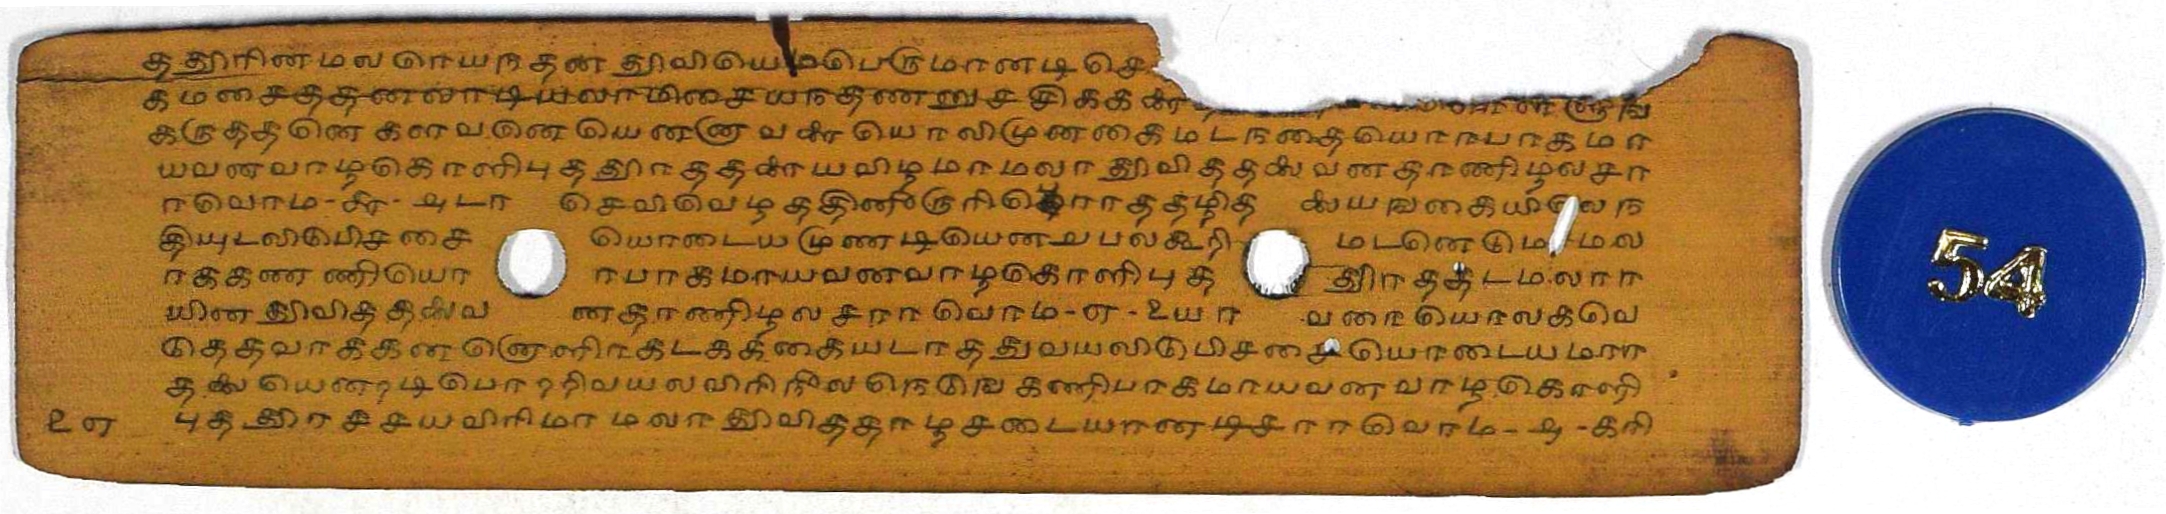 த தூரின மலரொயநதன தூவியெமபெருமானடி செ
கமசைததனலாடியலாமிசையநதணனுசசிககண
கருததனெகளவனெயெனனுவகையொலிமுனகைமடநதையொரபாகமா
யவனவாழகொளிபுததூரததகையவிழமாமலரதூவிததலைவனதாளநிழலசா
ரவொம-௬-ஷடா செவிவெழததினுரிகொரததழித லையஙகையிலெந
தியுடலிடுபிசசை யொடையமுணடியெனபபலகூறி மடனெடுமாமல
ரககணணியொ ரபாகமாயவனவாழகொளிபுத தூரததடமலரா
யினதூவிததலைவ னதாளநிழலசாரவொம-௭-உயர வரையொலகவெ
டுததவரககனனெளிரகடகககையடரததுவயலிடுபிசசையொடையமரா
தலையெனரடிபொறறிவயலவிரிநீலநெடுஙகணிபாகமாயவனவாழகொளி
உ௭ புததூரசசயவிரிமாமலரதூவிததாழசடையானடிசாரவொம-ஷ-கரி
54